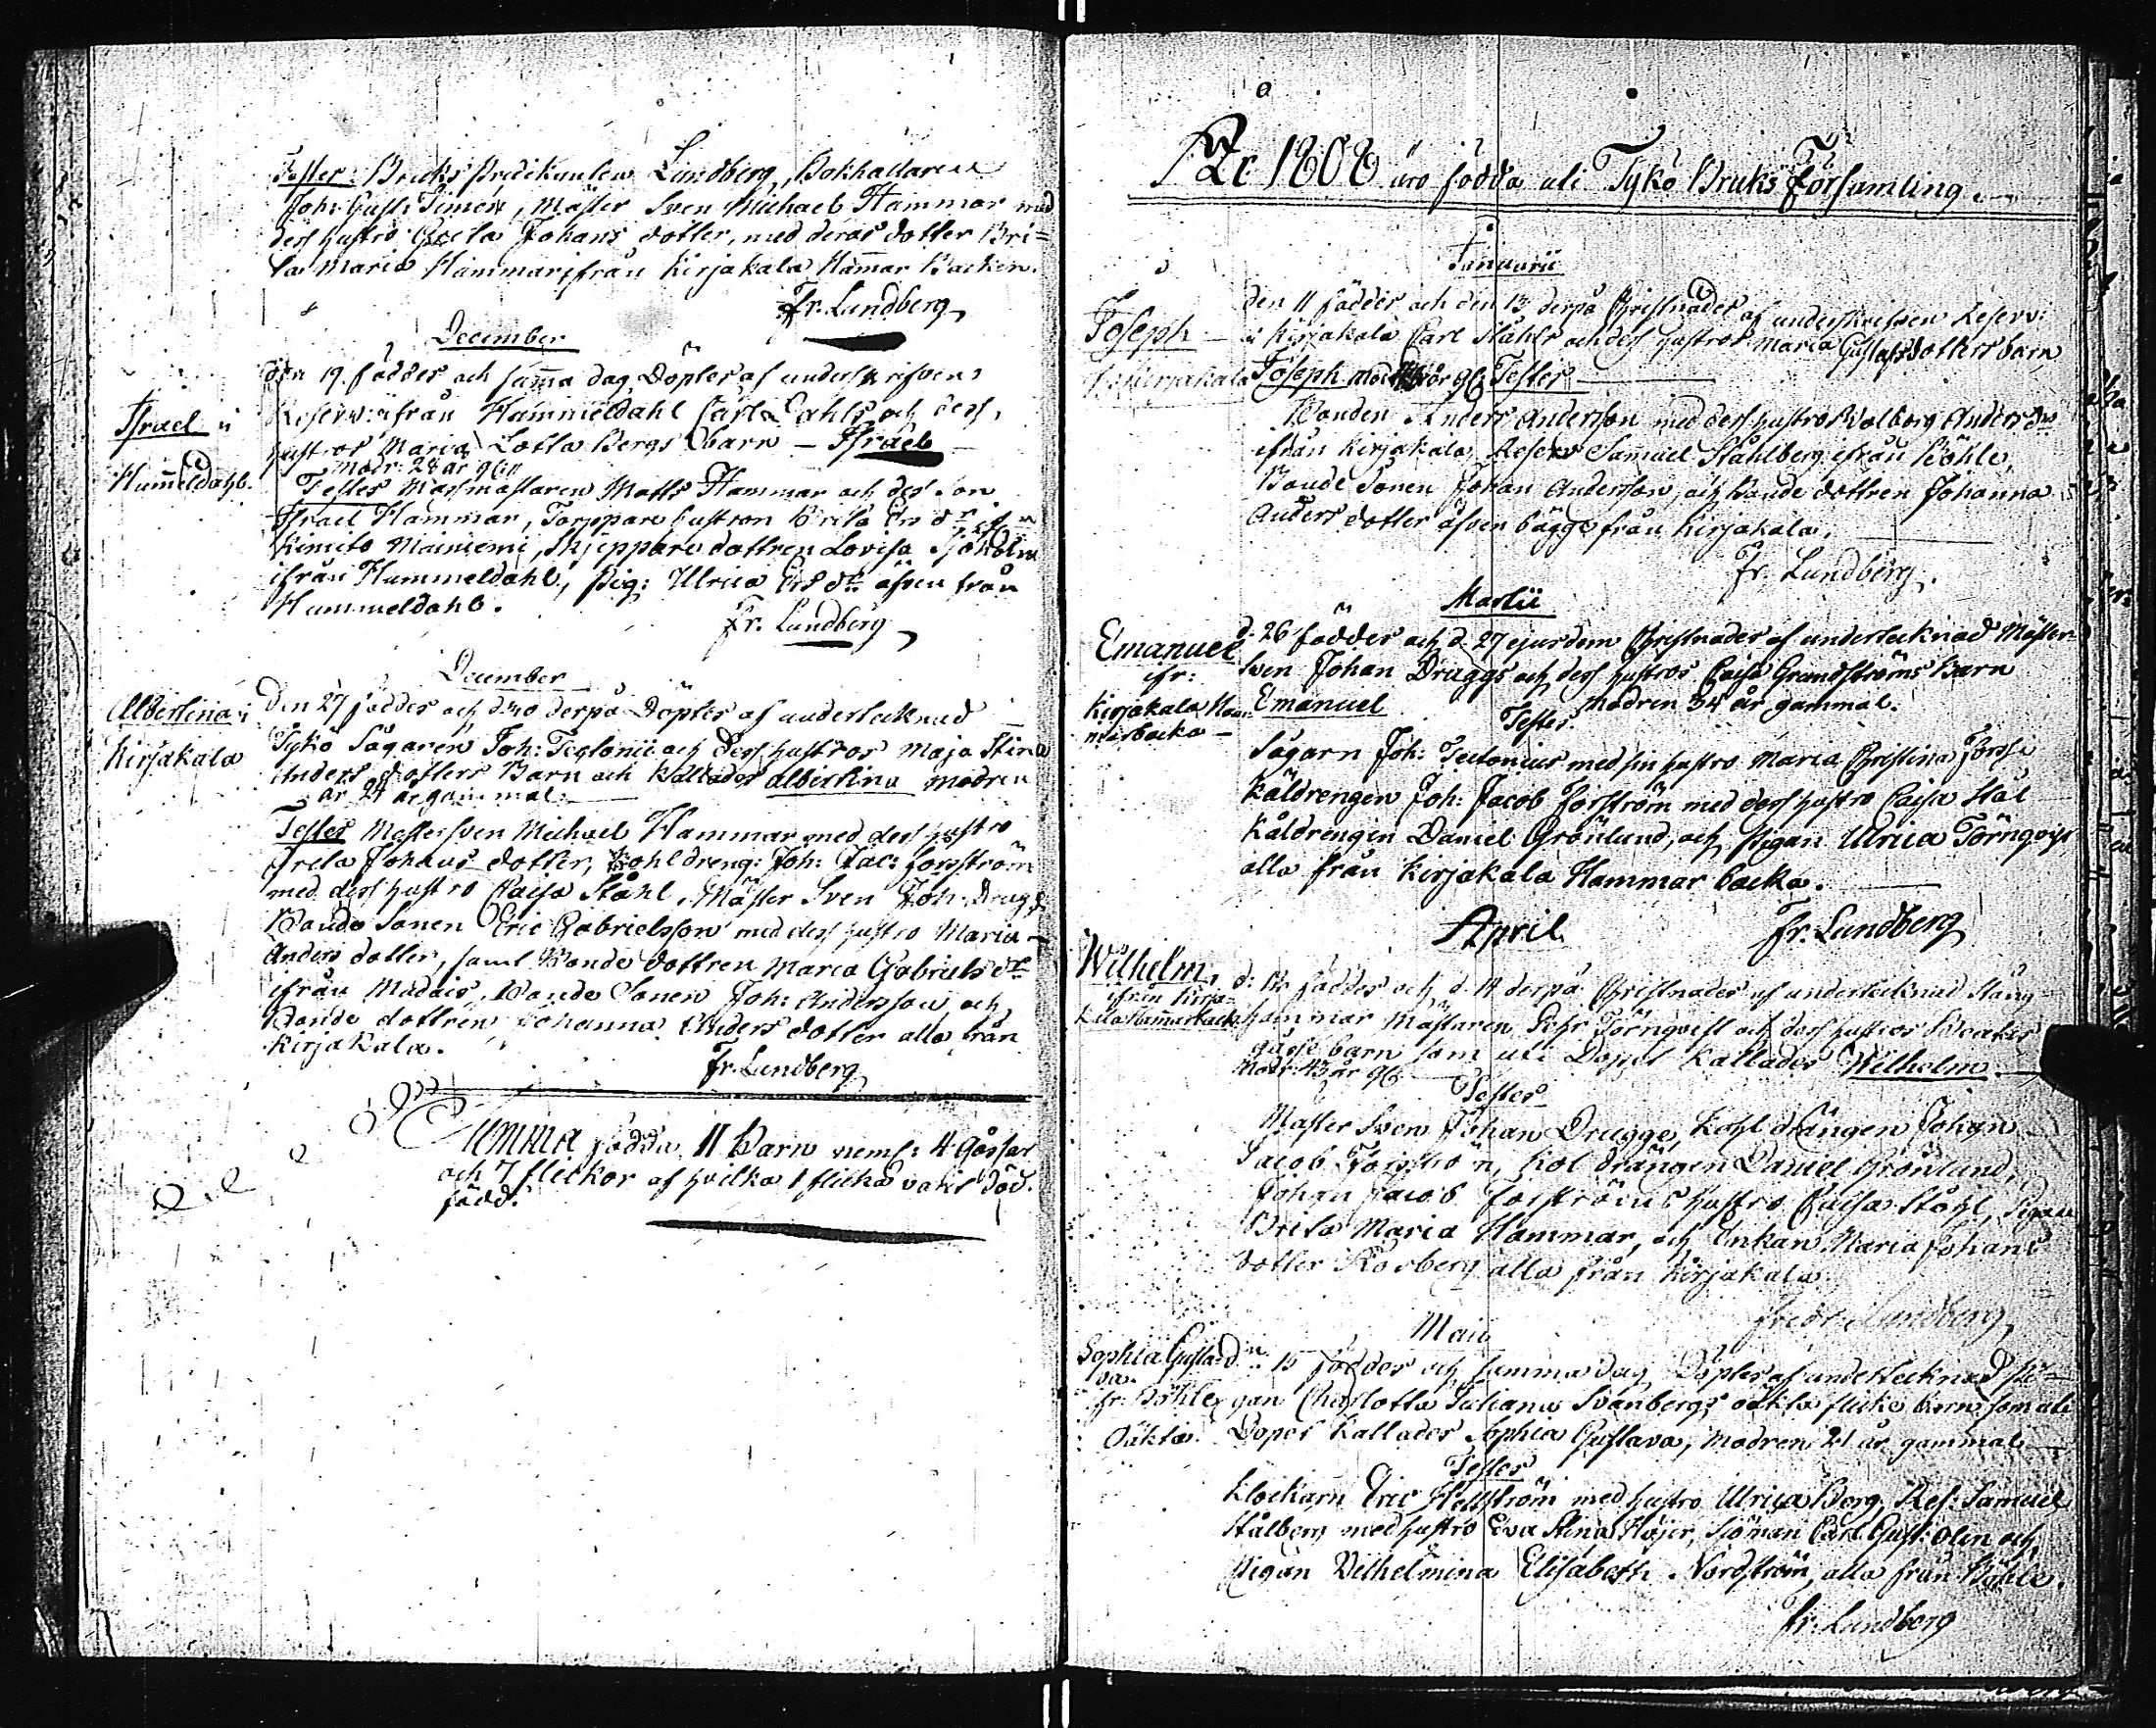 Tester: Bruks Predikanten Lundberg, Bokhållaren
Joh: Gust: Timén, Mäster Sven Michael Hammar med
dess hustro Greta Johans dotter, med deras dotter Bri=
ta Maria Hammar ifrån Kirjakala Hammar Backen.
Fr. Lundberg
December
den 19. föddes och samma dag Döptes af underskrifven,
Reserv: ifrån Hummeldahl Carl Dahls och dess
Israel i
hustros Maria Lotta Bergs barn – Israel
Modr: 28 år gl:
Hummeldahl.
Testes Masmästaren Matts Hammar och des son
Israel Hammar, Torppare hustron Brita
Kimito Mainiemi, Skieppare dottren Lovisa Sjöholm
ifrån Hummeldahl, pig: Ulrica Ers dr äfven från
Hummeldahl.
Fr. Lundberg
December
Albertina i
Den 27 föddes och d: 30 derpå Döptes af undertecknad
Kirjakala
Tykö Sågaren Joh: Tectonii och Dess hustros Maja Stina
Anders dotters Barn och kallades Albertina modren
är 24 år gammal.
Testes Mästersven Michael Hammar med dess hustro
Greta Johans dotter, Kohldreng: Joh: Jac: Forsström
med dess hustro Caisa Ståhl, Mäster Sven Joh: Drugg
Bonde Sonen Eric Gabrielsson med dess hustro Maria
Anders dotter, samt Bonde dottren Maria Gabriels dr
ifrån Madais, Bonde Sonen Joh: Andersson och
Bonde dottren Johanna Anders dotter alla från
Kirjakala.
Fr. Lundberg
Summa födda 11 Barn neml: 4 Gossar
och 7 flickor af hvilka 1 flicka varit död
född.
1808 äro födda uti Tykö Bruks Församling.
Januarii
den 11 föddes och den 13 derpå Christnades af underskrifven Reserv:
Joseph
i Kirjakala Carl Ståhls och dess hustros Maria Gustafsdotters barn
i Kirjakala
Joseph Mod år gl: Testes
Bonden Anders Andersson med dess hustro Valborg Anders dr
ifrån Kirjakala, Reserv Samuel Ståhlberg ifrån Böhle,
Bonde Sonen Johan Andersson, och Bonde dottren Johanna
Anders dotter äfven bägge från Kirjakala.
Fr. Lundberg.
Martii
Emanuel
d. 26 föddes och d. 27 ejusdem Christnades af undertecknad Mäster=
ifr:
Sven Johan Druggs och dess hustros Caisa Grandströms Barn
Kirjakala Ham=
Emanuel modren 34 år gammal.
marbacka
Testes
Sågarn Joh: Tectonius med sin hustro Maria Christina Forss
Kåldrengen Joh: Jacob Forström med dess hustro Caisa Stål
Kåldrengen Daniel Grönlund, och pigan Ulrica Törnqvist
alla från Kirjakala Hammar backa.
April
Fr. Lundberg
Wilhelm,
d: föddes och d. 14 derpå Christnades af undertecknad Stång=
ifrån Kirja=
kala Hammarbacka
hammar Mästaren Pehr Törnqvist och dess hustros
gåsse barn som uti Dopet kallades Wilhelm
Modr: 43 år gl:
Testes
Mäster Sven Johan Drugge, Kohl drängen Johan
Jacob Forsström, Kol drängen Daniel Grönlund,
Johan Jacob Forströms hustro Caisa Ståhl, Pigan
Brita Maria Hammar, och Enkan Maria Johans
dotter Rosberg alla från Kirjakala
Fredr: Lundberg
Maii
Sophia Gusta=
va.
d: 15 föddes och samma dag Döptes af undertecknad Pi=
fr: Böhle
gan Charlotta Juliana Svanbergs oäkta flicke barn som uti
Oäkta.
Dopet kallades Sophia Gustava, modren 21 år gammal
Testes
Klockarn Eric Hellström med hustro Ulrica Borg, Res: Samuel
Stålberg med hustro Eva Stina Höjer, Sjöman Carl Gust: Olin och
Pigan Vilhelmina Elisabeth Nordström, alla från Böhle.
Fr. Lundberg